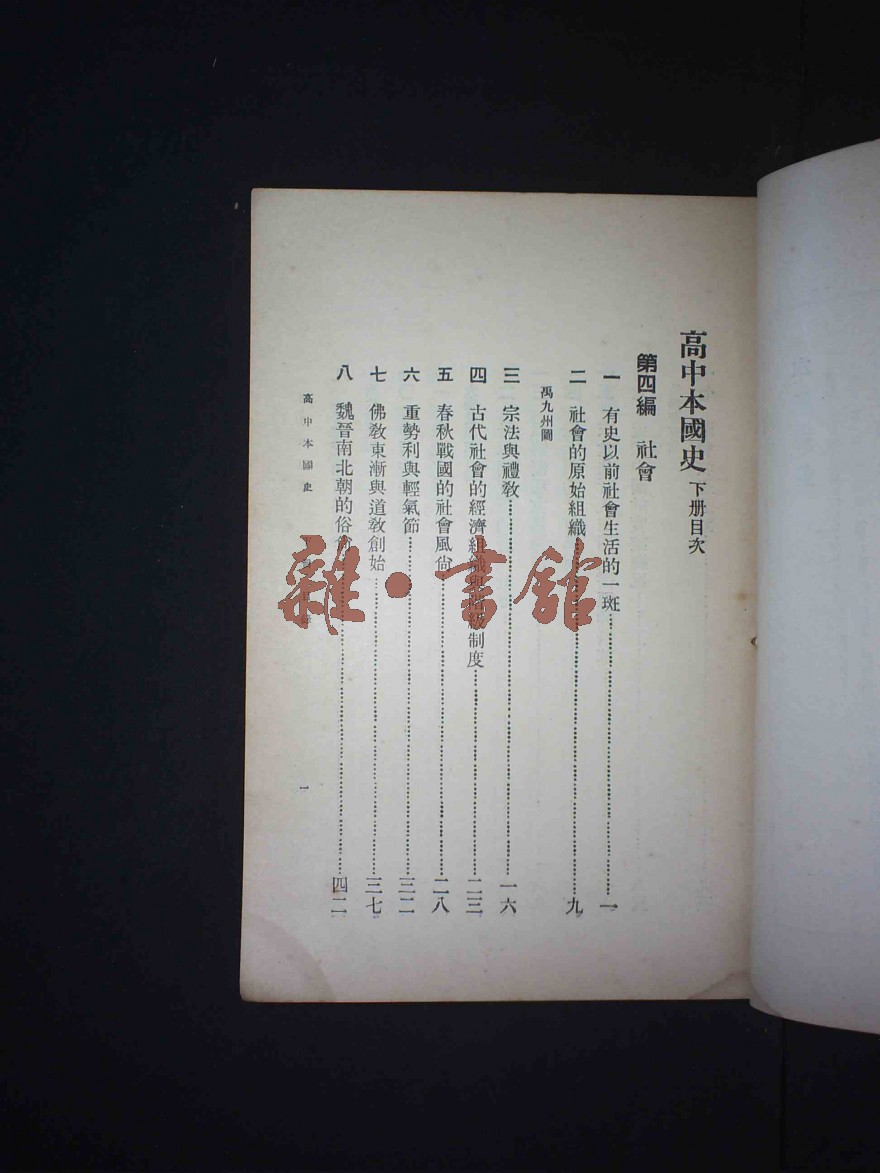 高中本國史 下册目次
第四編 社會
一 有史以前社會生活的一斑 一
二 社會的原始組織 九
禹九州圖
三 宗法與禮敎 一六
四 古代社會的經濟組織與階級制度 二三
五 春秋戰國的社會風尙 二八
六 重勢利與輕氣節 三二
七 佛敎東漸與道敎創始 三七
八 魏晉南北朝的俗尙 四二
高中本國史
一
雜·書館